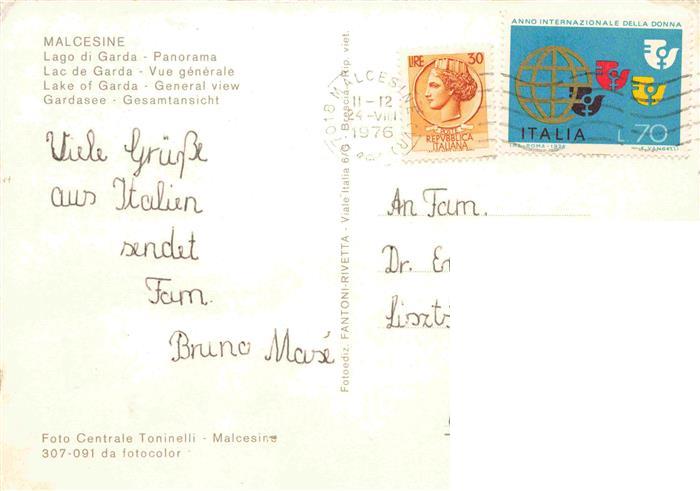 MALCESINE
Lago di Garda - Panorama
Lac de Garda - Vue générale
Lake of Garda - General view
Gardasee - Gesamtansicht
Viele Grüße
aus Italien
sendet
Fam.
Bruno Masé
Foto Centrale Toninelli - Malcesine
307-091 da fotocolor
Fotoediz. FANTONI-RIVETTA - Viale Italia 6/G - Brescia - Rip. viet.
LIRE 30
POSTE
REPVBBLICA
ITALIANA
MALCESINE
11-12
1976
ANNO INTERNAZIONALE DELLA DONNA
ITALIA L. 70
An Fam.
Dr.